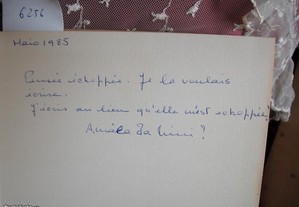 6256
Maio 1985
Pensée échappée. Je la voulais
écrire.
J'écris au lieu qu'elle m'est échappée